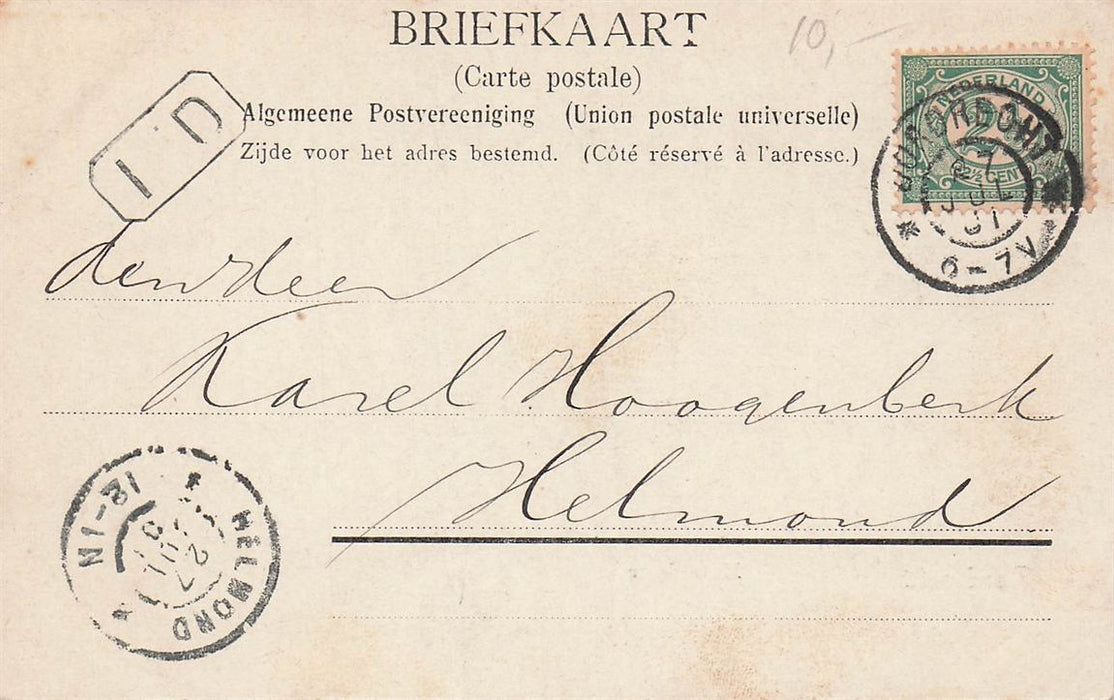 BRIEFKAART
10,—
(Carte postale)
Algemeene Postvereeniging (Union postale universelle)
Zijde voor het adres bestemd. (Côté réservé à l'adresse.)
I D
NEDERLAND
2½
2½ CENT
DORDRECHT
27 JUL 01
6-7V
den Heer
Karel Hoogenberk
Helmond
HELMOND
27 JUL
12-1N